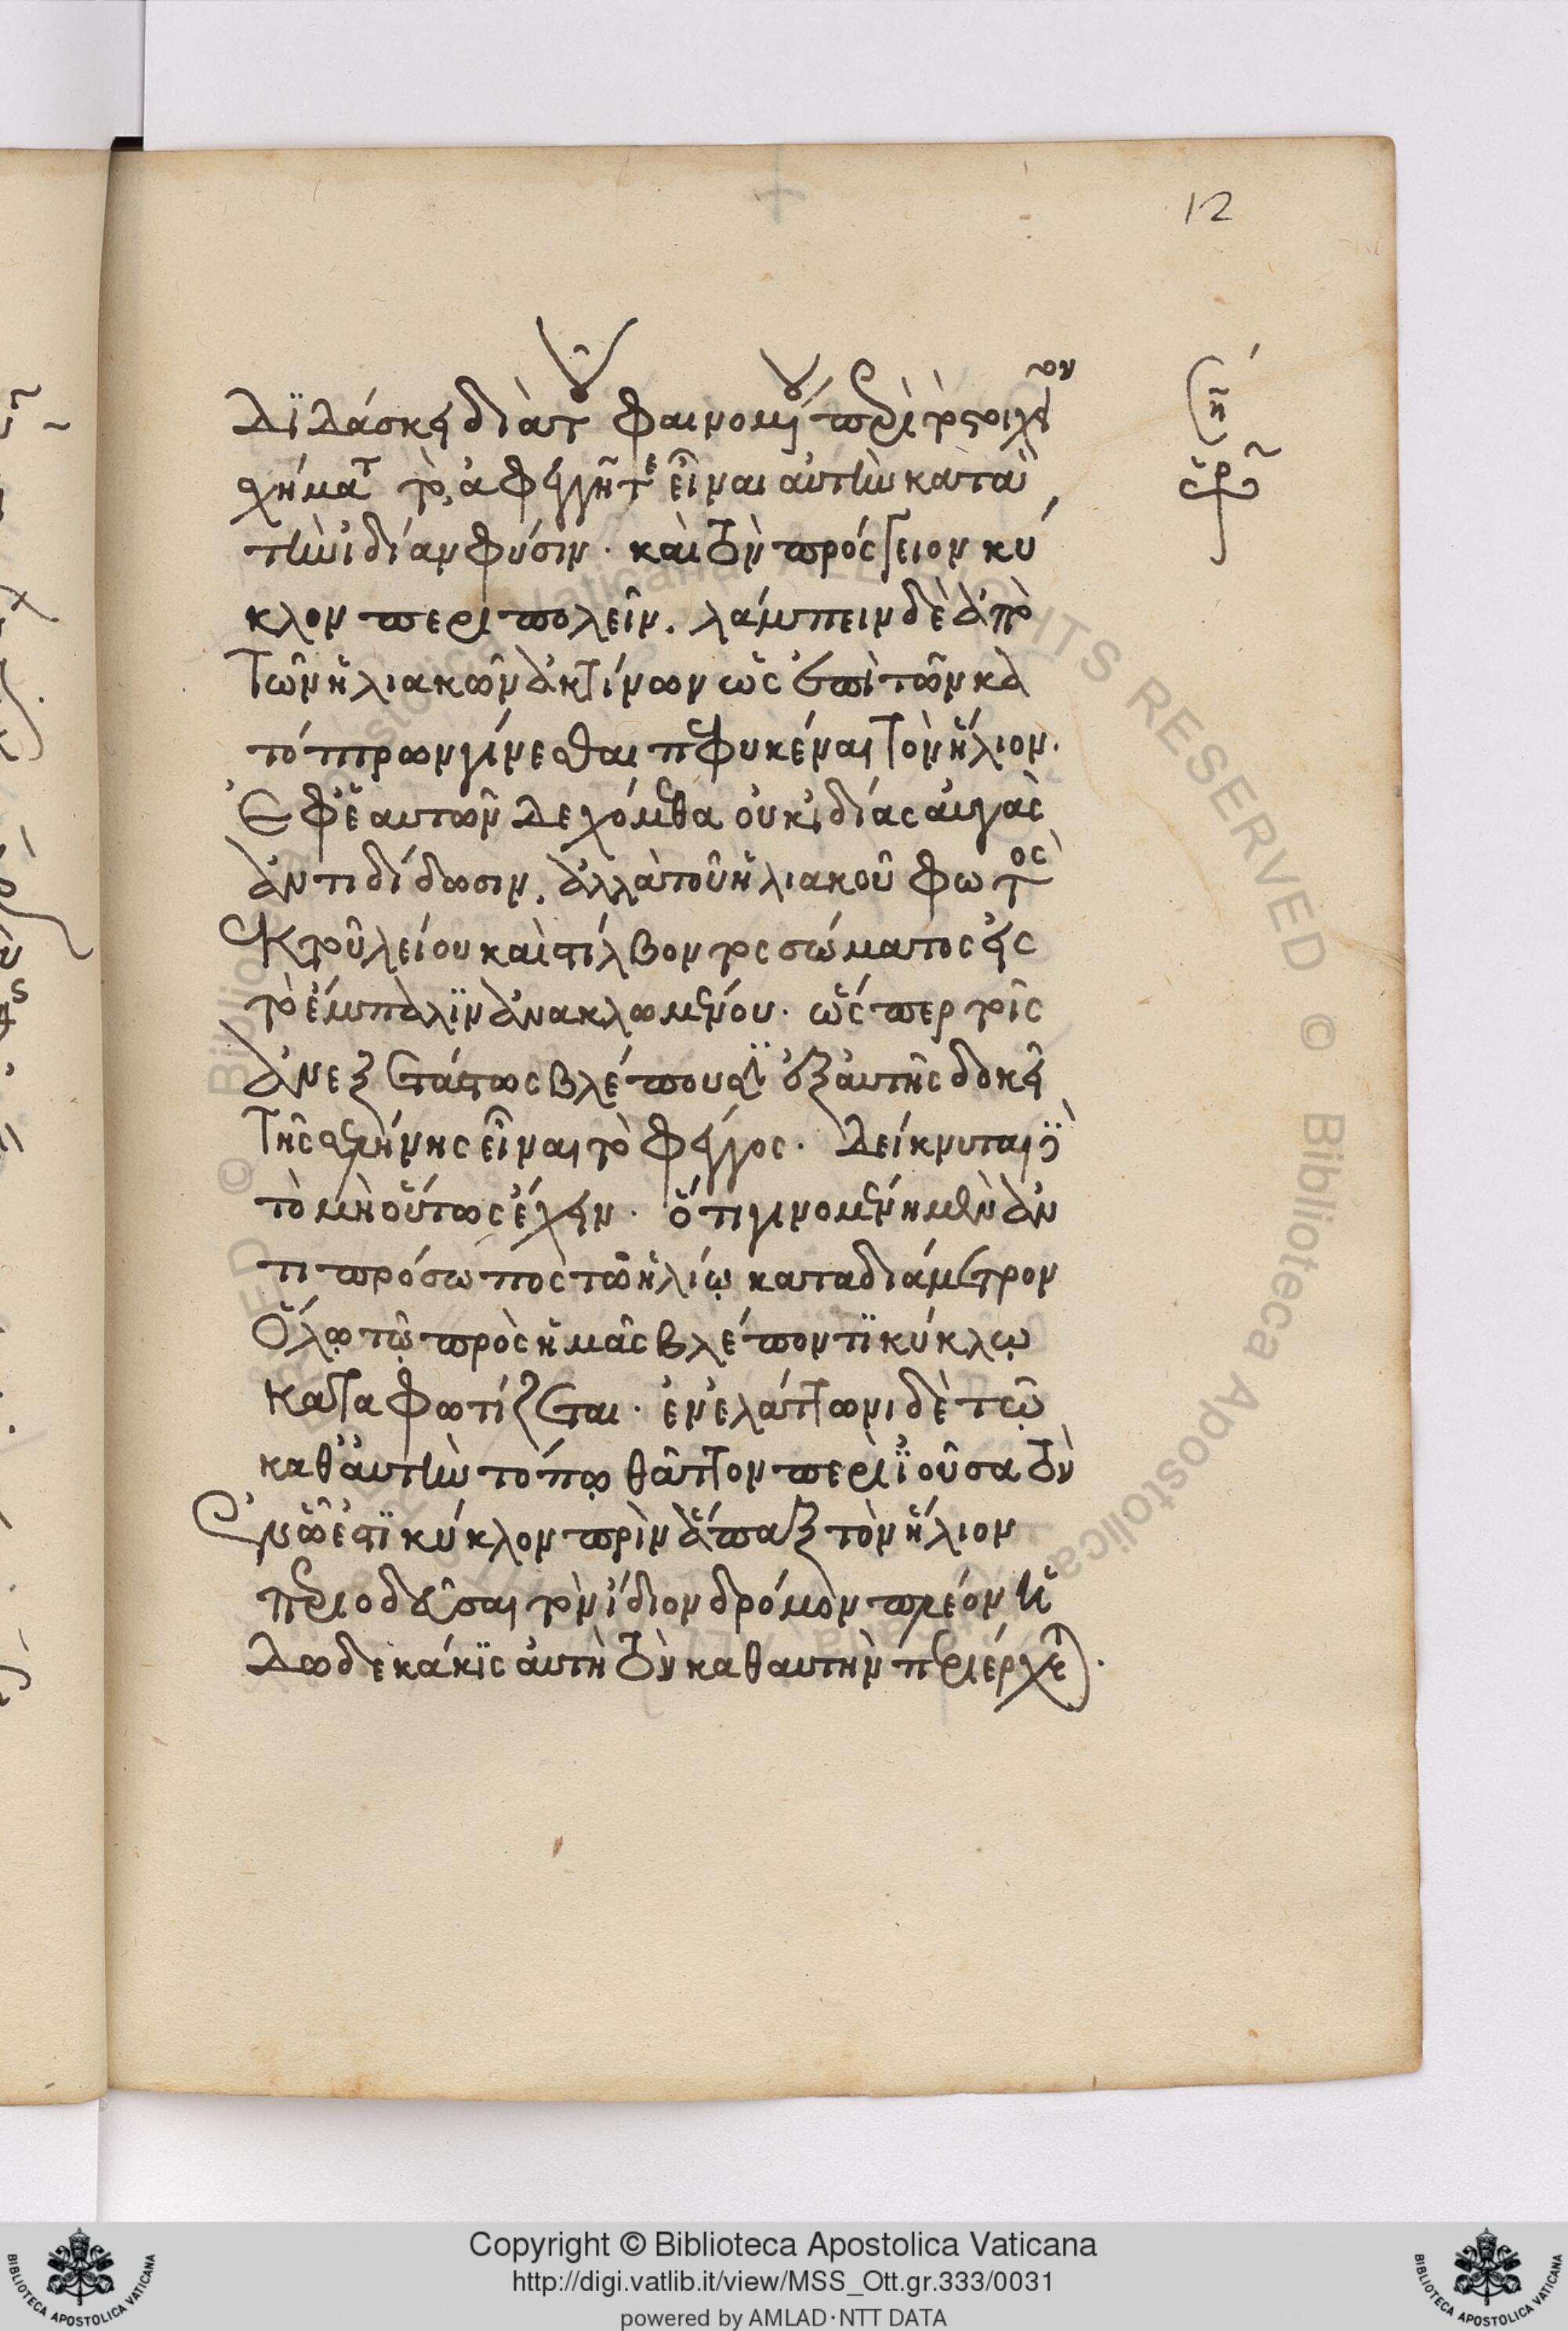 12
διδάσκει διὰ τοῦ φαινομένου περὶ τὸ στοιχεῖον
σχήματος τὸ ἀφεγγῆ τε εἶναι αὐτὴν κατὰ
τὴν ἰδίαν φύσιν· καὶ τὸν πρόσγειον κύ
κλον περιπολεῖν. λάμπειν δὲ ἀπὸ
τῶν ἡλιακῶν ἀκτίνων ὡς ἐπὶ τῶν κα
τόπτρων γίνεσθαι πεφυκέναι τὸν ἥλιον.
ἐφ' ἑαυτῶν δεχόμενα οὐκ ἰδίας αὐγὰς
ἀντιδίδωσιν. ἀλλὰ τοῦ ἡλιακοῦ φωτὸς
ἐκ τοῦ λείου καὶ στίλβοντος σώματος εἰς
τὸ ἔμπαλιν ἀνακλωμένου· ὥσπερ τοῖς
ἀνεξετάστως βλέπουσιν ἐξ αὐτῆς δοκεῖ
τῆς σελήνης εἶναι τὸ φέγγος. δείκνυται δὲ
τὸ μὴ οὕτως ἔχειν· ὅτι γινομένη μὲν ἀν
τιπρόσωπος τῶ ἡλίῳ κατὰ διάμετρον
ὅλῳ τῷ πρὸς ἡμᾶς βλέποντι κύκλῳ
καταφωτίζεται· ἐν ἐλάττωνι δὲ τῷ
καθ' αὑτὴν τόπῳ θᾶττον περιϊοῦσα τὸν
ἐν ᾧ ἐστὶ κύκλον πρὶν ἅπαξ τὸν ἥλιον
περιοδεῦσαι τὸν ἴδιον δρόμον πλέον ἢ
δωδεκάκις αὐτὴ τὸν καθ' αυτὴν περιέρχεται.
Copyright © Biblioteca Apostolica Vaticana
http://digi.vatlib.it/view/MSS_Ott.gr.333/0031
powered by AMLAD·NTT DATA